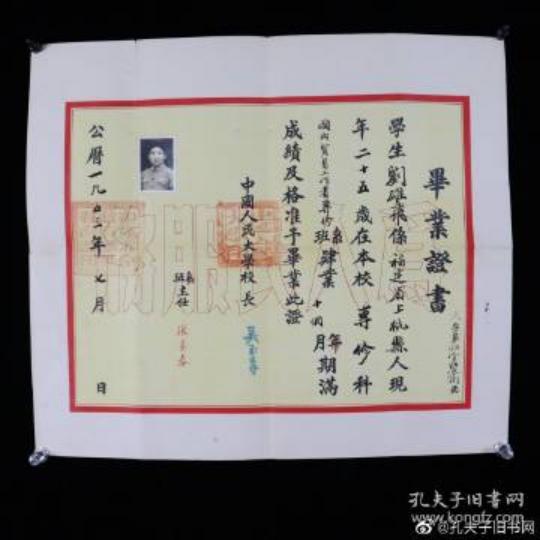 畢業證書
學生劉雄飛係福建省上杭縣人現
年二十五歲在本校專修科
國內貿易 專修班肄業十個月期滿
成績及格准予畢業此證
中國人民大學校長
吳玉章
班主任
公曆一九五二年七月 日
為人民服務
孔夫子旧书网
www.kongfz.com
@孔夫子旧书网